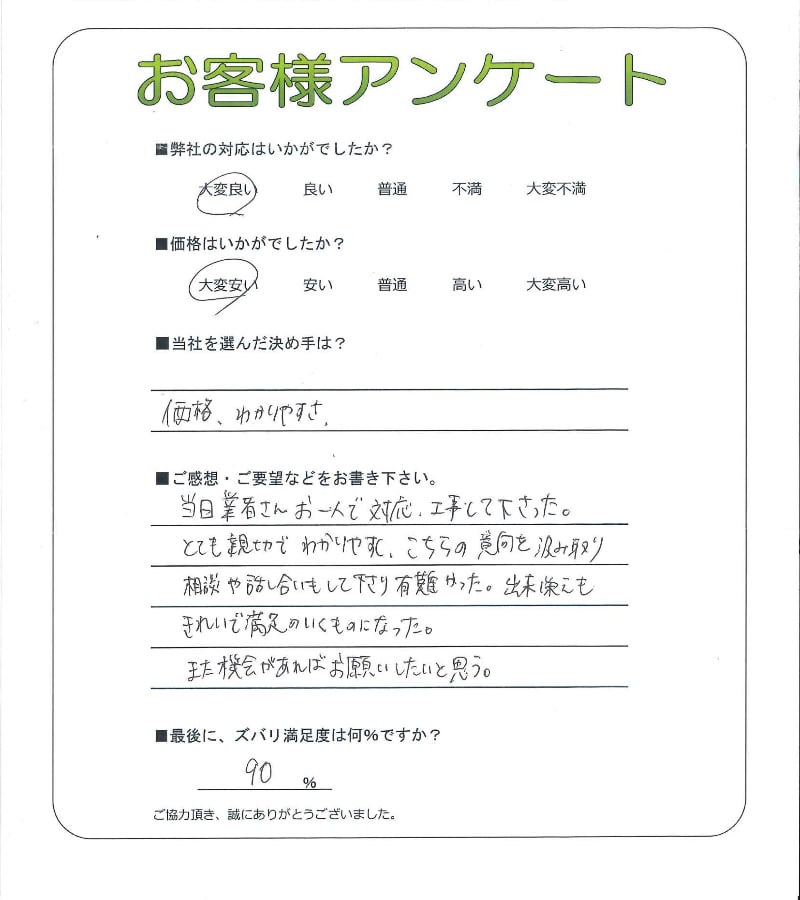 お客様アンケート
■弊社の対応はいかがでしたか？
大変良い 良い 普通 不満 大変不満
■価格はいかがでしたか？
大変安い 安い 普通 高い 大変高い
■当社を選んだ決め手は？
価格、わかりやすさ、
■ご感想・ご要望などをお書き下さい。
当日業者さんお一人で対応、工事して下さった。
とても親切でわかりやすく、こちらの意向を汲み取り
相談や話し合いもして下さり有難かった。出来栄えも
きれいで満足のいくものになった。
また機会があればお願いしたいと思う。
■最後に、ズバリ満足度は何％ですか？
90 %
ご協力頂き、誠にありがとうございました。